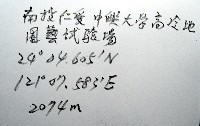 南投仁愛中興大学高冷地
園藝試驗場
24°04.605'N
121°07.583'E
2074m